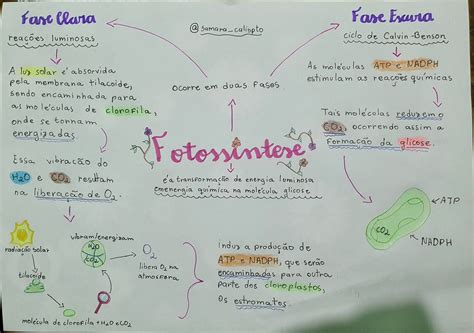 Fase Clara
reações luminosas
A luz solar é absorvida
pela membrana tilacoide,
sendo encaminhada para
as moléculas de clorofila,
onde se tornam
energizadas.
Essa vibração do
H2O e CO2 resultam
na liberação de O2.
@samara_calixpto
Ocorre em duas fases
Fotossíntese
é a transformação de energia luminosa
em energia química na molécula glicose
Fase Escura
ciclo de Calvin-Benson
As moléculas ATP e NADPH
estimulam as reações químicas
Tais moléculas reduzem o
CO2 ocorrendo assim a
formação da glicose.
CO2
ATP
NADPH
radiação solar
tilacoide
vibram/energizam
H2O
CO2
O2
libera O2 na
atmosfera
molécula de clorofila + H2O e CO2
Induz a produção de
ATP e NADPH, que serão
encaminhadas para outra
parte dos cloroplastos,
Os estromatos.